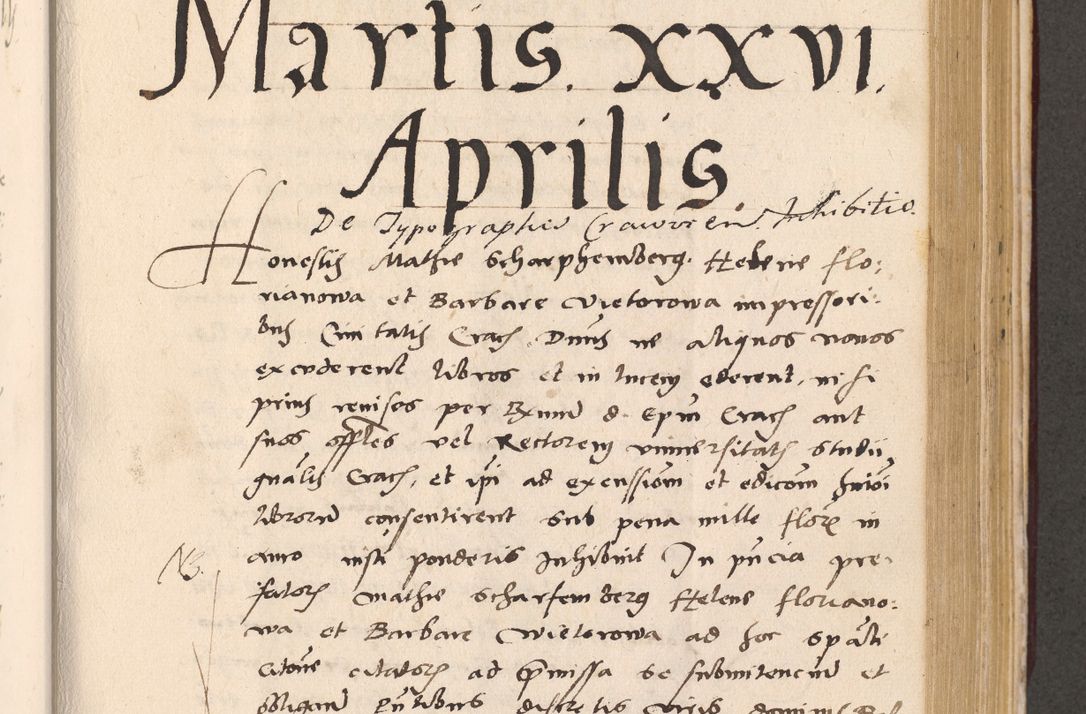 Martis. xxvi.
Aprilis.
De Typographie Inhibitio.
Honestis Mathie Scharphemberg. Helene Flo:
rianowa et Barbare Wietorowa impressori:
bus Civitatis Crac. Dnus ne aliquos novos
excuderent libros et in lucem ederent, nisi
prius revisos per Rxmum d. Epm Crac. aut
suos offles vel Rectorem universitatis studii
gnalis Crac. et ipi ad excussiom et edicom
librorum consentirent sub pena mille florz in
auro iusti ponderis Inhibuit In pncia pre:
fatorz Mathie Scharfemberg Helene Floriano:
wa et Barbare Wietorowa ad hoc spali
citatorz ad pmissa se submitencium et
obligan discretis viris